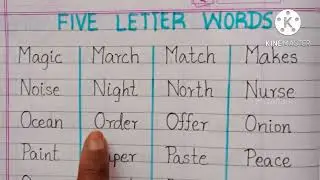 FIVE LETTER WORDS
KINEMASTER
Magic March Match Makes
Noise Night North Nurse
Ocean Order Offer Onion
Paint Paste Peace